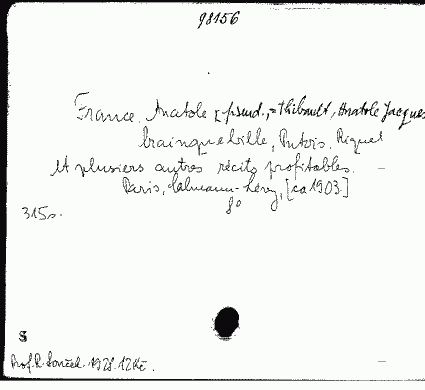 98156
France, Anatole [pseud., = Thibault, Anatole Jacques
Crainquebille, Putois, Riquet
et plusiers autres récits profitables.
Paris, Calmann-Lévy, [ca 1903.]
8°
315s.
S
Prof. R. Souček. 1928. 12Kč.